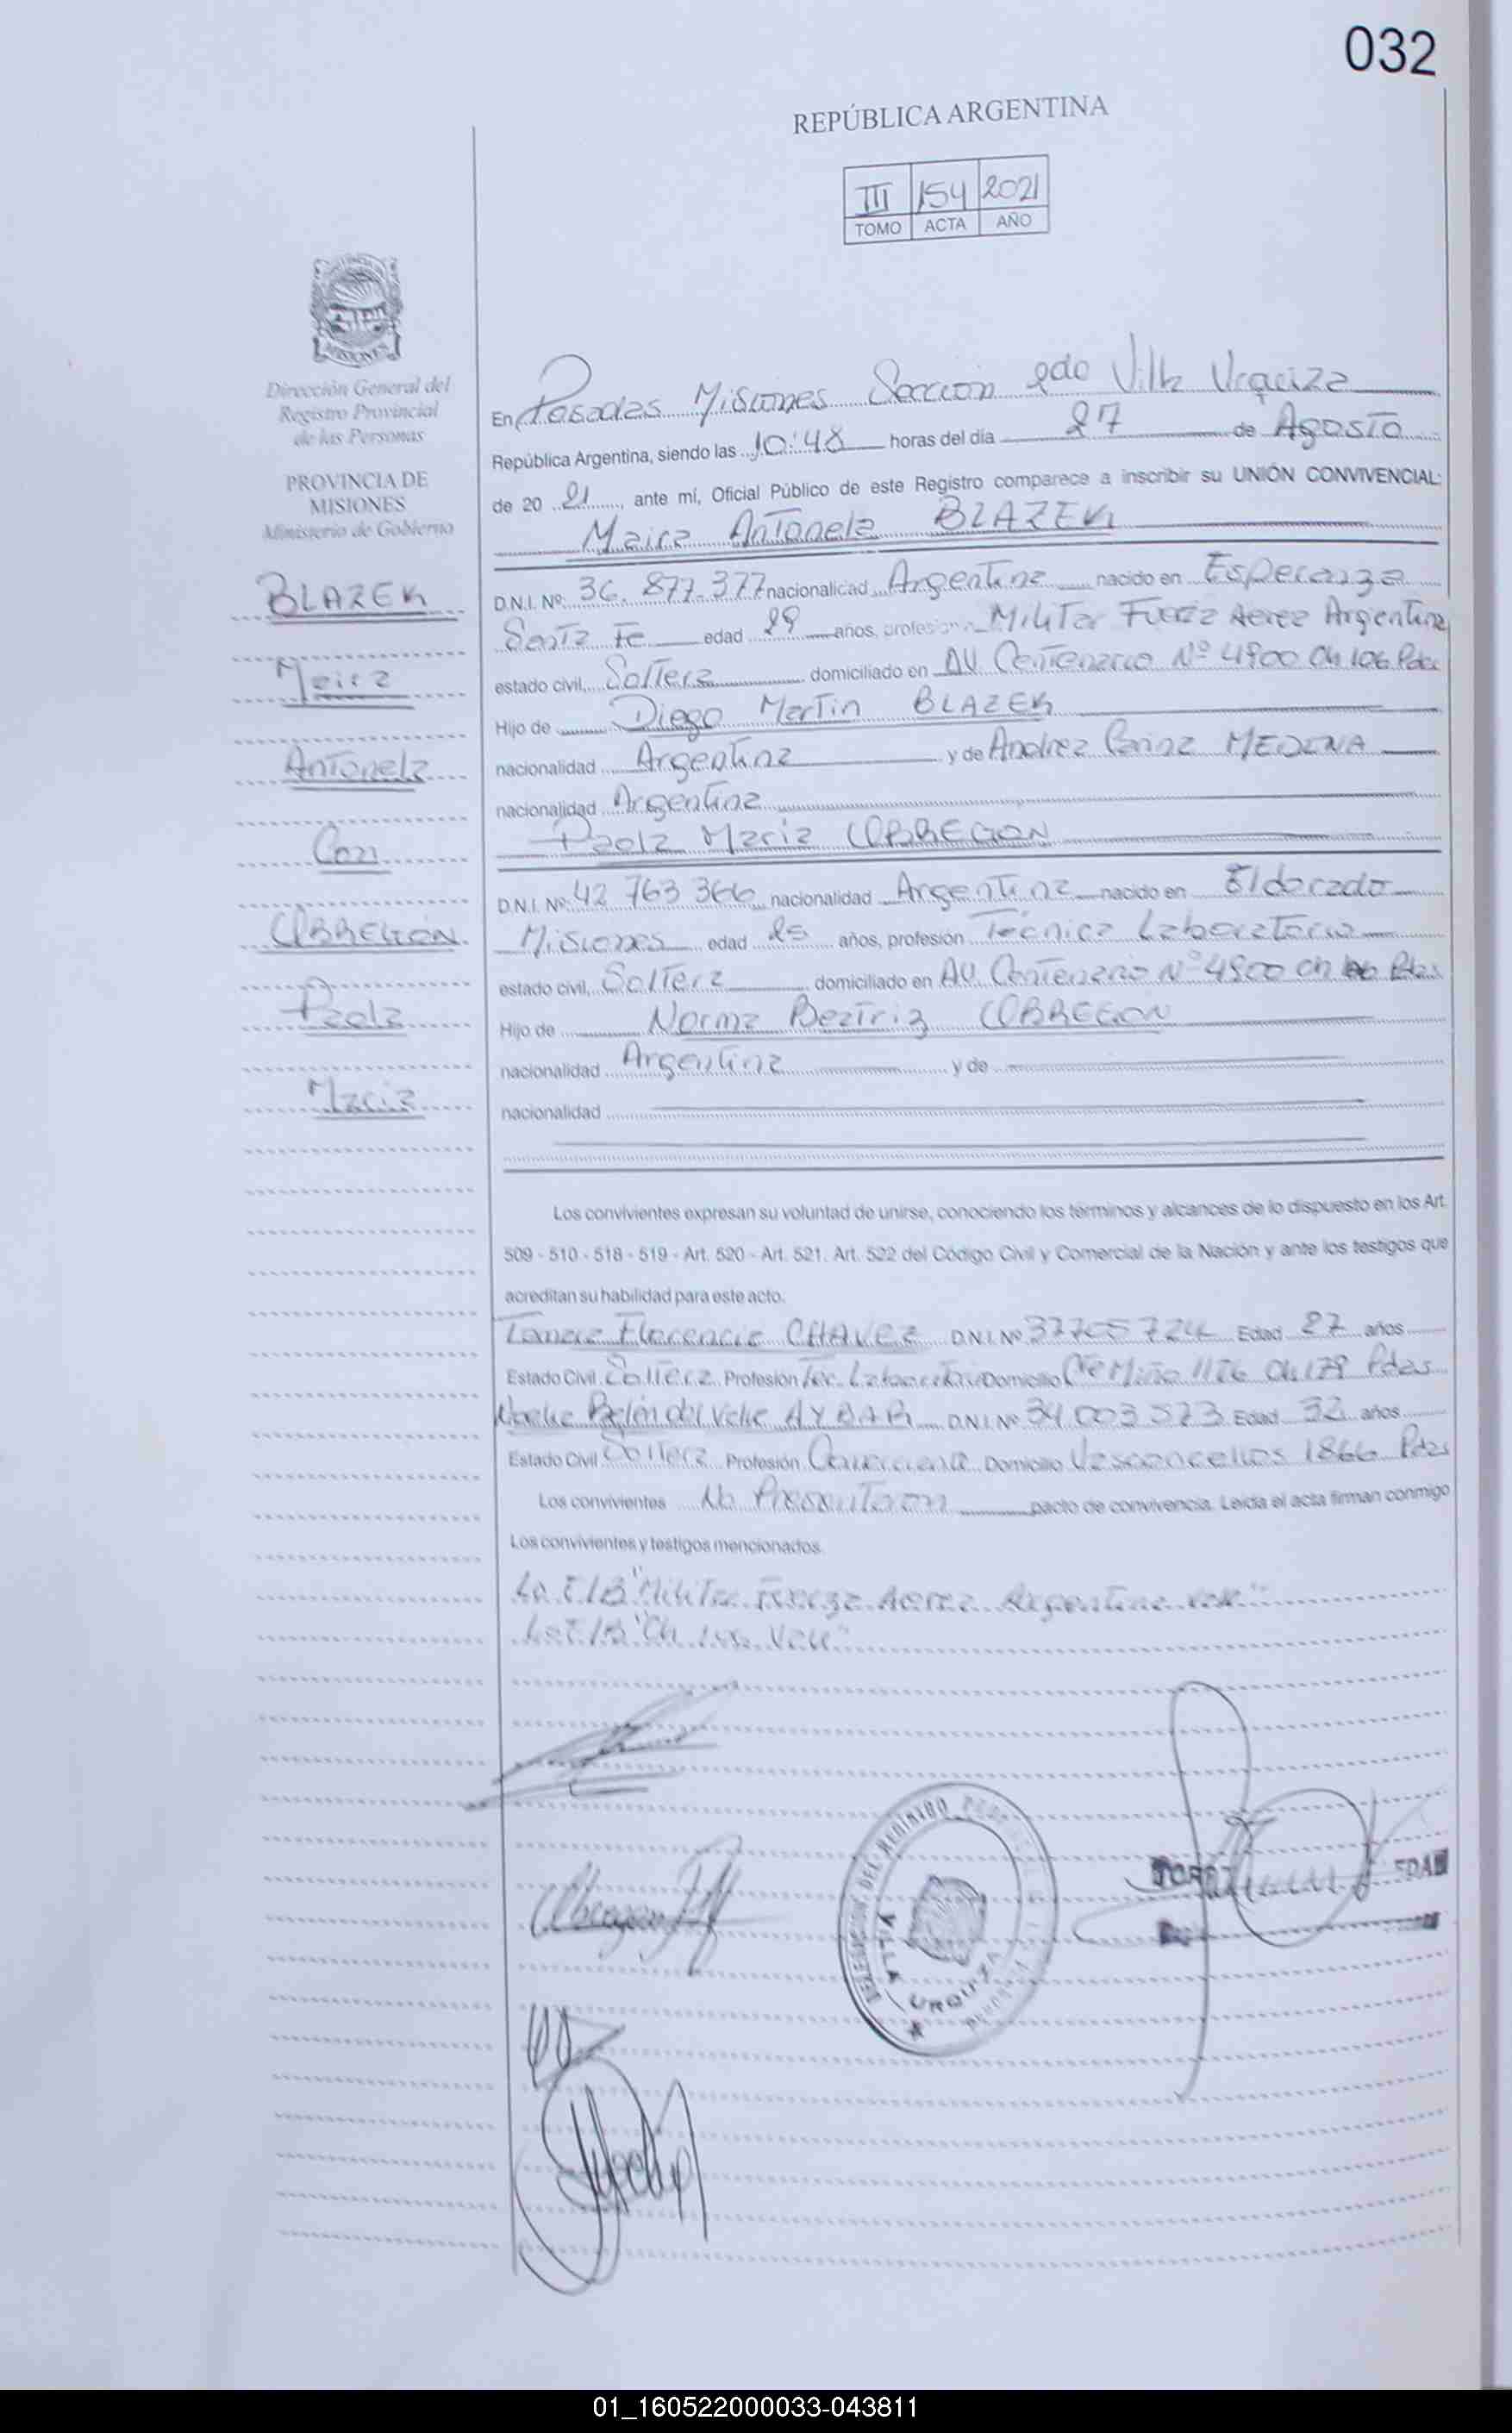 032
REPÚBLICA ARGENTINA
III 154 2021
TOMO ACTA AÑO
MISIONES
Dirección General del
Registro Provincial
de las Personas
PROVINCIA DE
MISIONES
Ministerio de Gobierno
BLAZEK
Maira
Antonela
Con
OBREGÓN
Paola
Maria
En Posadas Misiones Sección 2do Villa Urquiza
República Argentina, siendo las 10:48 horas del día 27 de Agosto
de 20 21, ante mí, Oficial Público de este Registro comparece a inscribir su UNIÓN CONVIVENCIAL:
Maira Antonela BLAZEK
D.N.I. Nº: 36.877.377 nacionalidad Argentina nacido en Esperanza
Santa Fe edad 29 años, profesión Militar Fuerza Aerea Argentina
estado civil, Soltera domiciliado en AV. Centenario Nº 4900 Ch 106 Pdas
Hijo de Diego Martin BLAZEK
nacionalidad Argentina y de Andrea MEDINA
nacionalidad Argentina
Paola Maria OBREGON
D.N.I. Nº: 42 763 366 nacionalidad Argentina nacido en Eldorado
Misiones edad años, profesión Técnica Laboratorio
estado civil, Soltera domiciliado en AV. Centenario Nº 4900 Ch 106 Pdas
Hijo de Norma Beatriz OBREGON
nacionalidad Argentina y de
nacionalidad
Los convivientes expresan su voluntad de unirse, conociendo los términos y alcances de lo dispuesto en los Art.
509 - 510 - 518 - 519 - Art. 520 - Art. 521. Art. 522 del Código Civil y Comercial de la Nación y ante los testigos que
acreditan su habilidad para este acto.
Tamara Florencia CHAVEZ D.N.I. Nº 37705724 Edad 27 años
Estado Civil Soltera Profesión Tec. Laboratorio Domicilio Miño 1176 Ch 179 Pdas
Belén del Valle AYBAR D.N.I. Nº 34 003 573 Edad 32 años
Estado Civil Soltera Profesión Comerciante Domicilio Vasconcellos 1866 Pdas
Los convivientes No Presentaron pacto de convivencia. Leída el acta firman conmigo
Los convivientes y testigos mencionados.
Lo E/B "Militar Fuerza Aerea Argentina vale"
Lo E/B "Ch 106 Vale"
VILLA URQUIZA
01_160522000033-043811